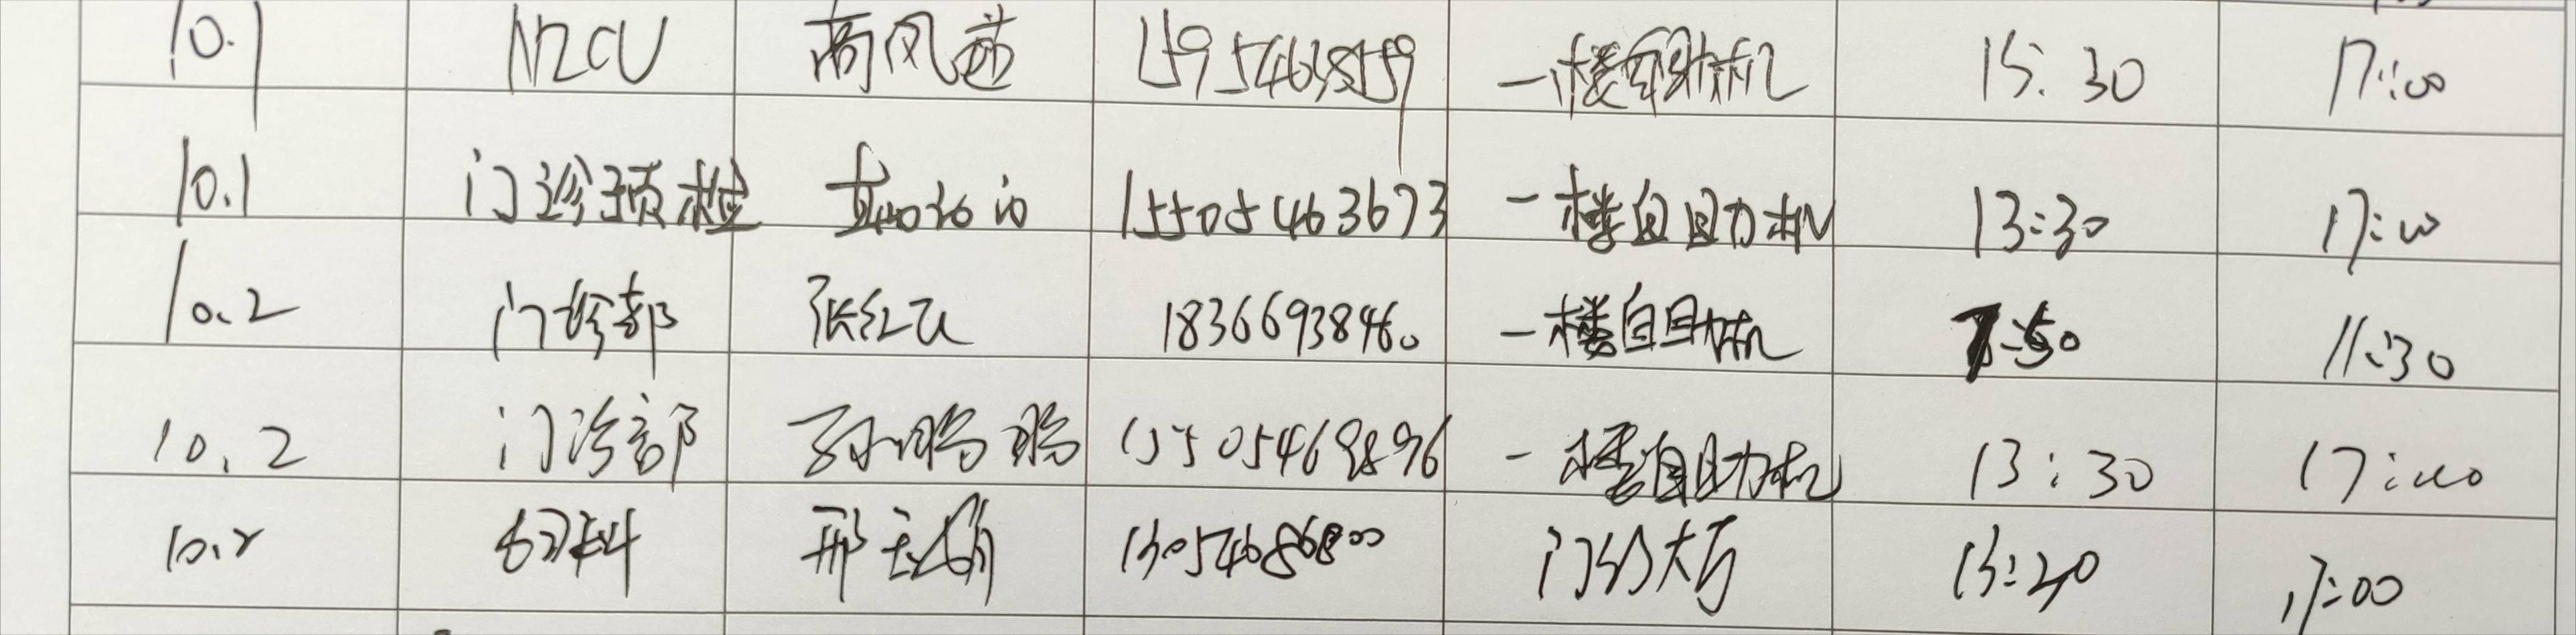 10.1 NICU 商凤 一楼自助机 15:30 17:00
10.1 门诊预检 15505463673 一楼自助机 13:30 17:00
10.2 门诊部 张红 18366938460 一楼自助机 7:50 11:30
10.2 门诊部 孙鹃鹃 15505469896 一楼自助机 13:30 17:00
10.2 妇科 邢 13054686800 门诊大厅 13:20 17:00